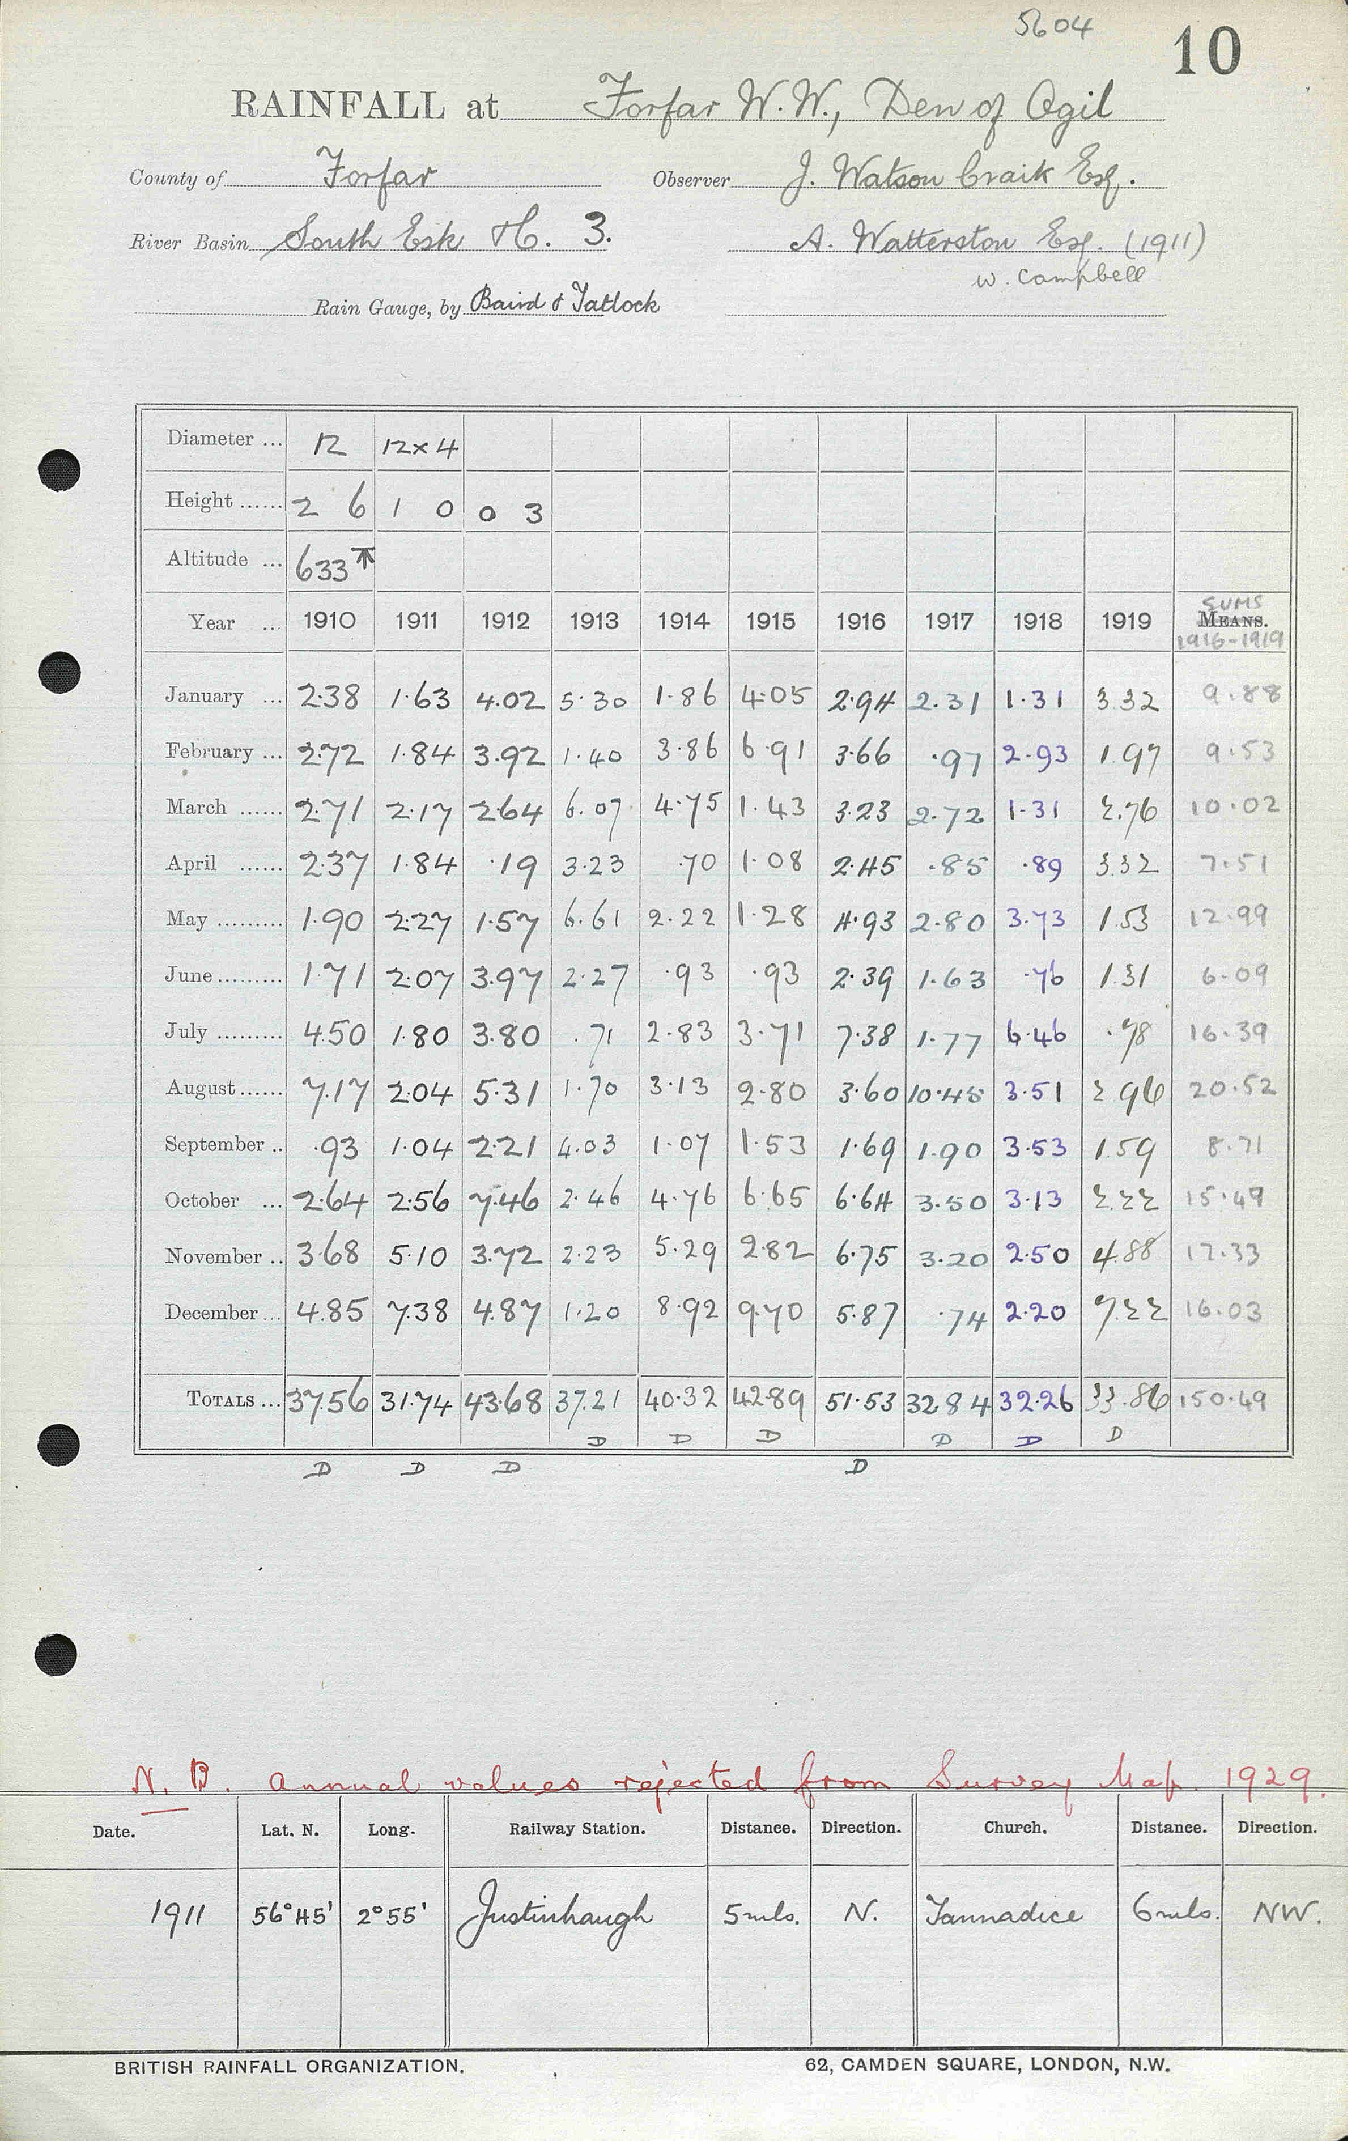 5604
10
RAINFALL at Forfar W.W., Den of Ogil
County of Forfar Observer J. Watson Craik Esq.
River Basin South Esk H. 3. A. Watterston Esq. (1911)
W. Campbell
Rain Gauge, by Baird & Tatlock
Diameter ... 12 12x4
Height ...... 2 6 1 0 0 3
Altitude ... 633↑
SUMS
Year ... 1910 1911 1912 1913 1914 1915 1916 1917 1918 1919 MEANS.
1916-1919
January ... 2.38 1.63 4.02 5.30 1.86 4.05 2.94 2.31 1.31 3.32 9.88
February ... 2.72 1.84 3.92 1.40 3.86 6.91 3.66 .97 2.93 1.97 9.53
March ...... 2.71 2.17 2.64 6.07 4.75 1.43 3.23 2.72 1.31 2.76 10.02
April ...... 2.37 1.84 .19 3.23 .70 1.08 2.45 .85 .89 3.32 7.51
May ......... 1.90 2.27 1.57 6.61 2.22 1.28 4.93 2.80 3.73 1.53 12.99
June ......... 1.71 2.07 3.97 2.27 .93 .93 2.39 1.63 .76 1.31 6.09
July ......... 4.50 1.80 3.80 .71 2.83 3.71 7.38 1.77 6.46 .78 16.39
August ...... 7.17 2.04 5.31 1.70 3.13 2.80 3.60 10.45 3.51 2.96 20.52
September .. .93 1.04 2.21 4.03 1.07 1.53 1.69 1.90 3.53 1.59 8.71
October ... 2.64 2.56 7.46 2.46 4.76 6.65 6.64 3.50 3.13 2.22 15.49
November .. 3.68 5.10 3.72 2.23 5.29 2.82 6.75 3.20 2.50 4.88 17.33
December ... 4.85 7.38 4.87 1.20 8.92 9.70 5.87 .74 2.20 7.22 16.03
TOTALS ... 37.56 31.74 43.68 37.21 40.32 42.89 51.53 32.84 32.26 33.86 150.49
D D D D D D
D D D D
N.B. Annual values rejected from Survey Map. 1929.
Date. Lat. N. Long. Railway Station. Distance. Direction. Church. Distance. Direction.
1911 56°45' 2°55' Justinhaugh 5 mls. N. Tannadice 6 mls. NW.
BRITISH RAINFALL ORGANIZATION. 62, CAMDEN SQUARE, LONDON, N.W.